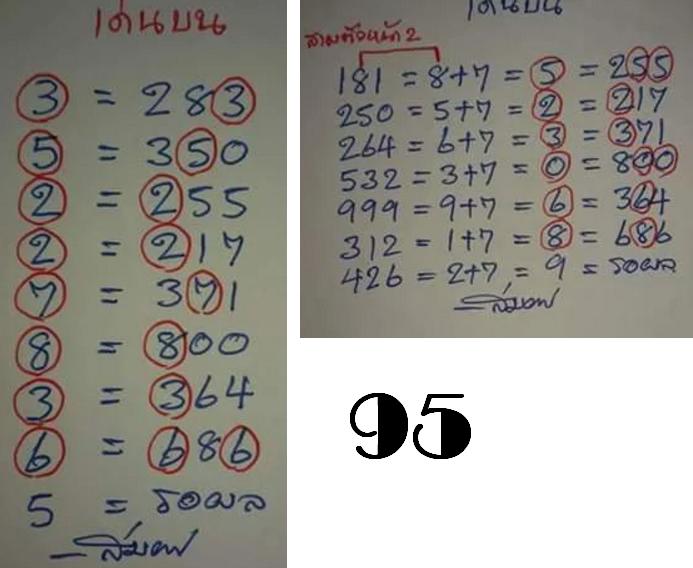 เด่นบน
3 = 283
5 = 350
2 = 255
2 = 217
7 = 371
8 = 800
3 = 364
6 = 686
5 = รอผล
เด่นบน
สามตัวหน้า 2
181 = 8+7 = 5 = 255
250 = 5+7 = 2 = 217
264 = 6+7 = 3 = 371
532 = 3+7 = 0 = 800
999 = 9+7 = 6 = 364
312 = 1+7 = 8 = 686
426 = 2+7 = 9 = รอผล
95